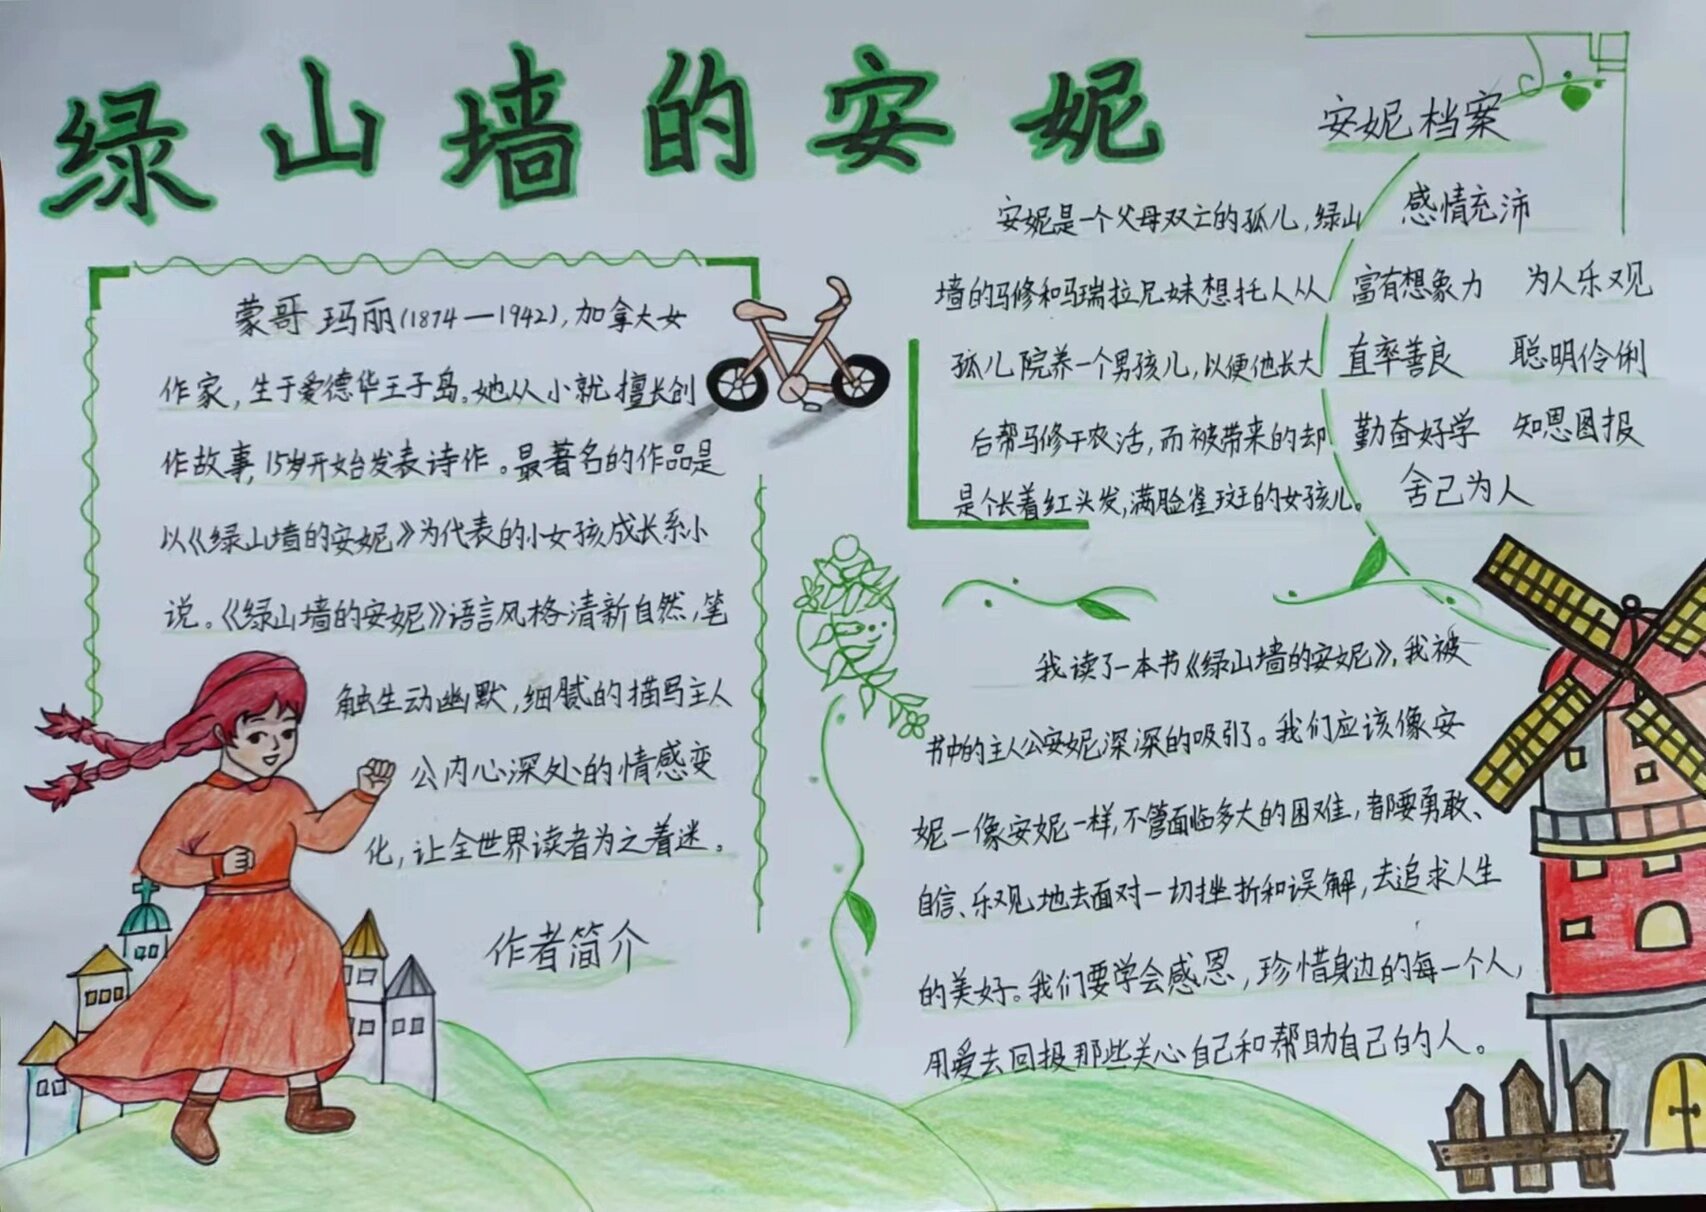 绿山墙的安妮
蒙哥玛丽(1874—1942),加拿大女
作家,生于爱德华王子岛。她从小就擅长创
作故事,15岁开始发表诗作。最著名的作品是
以《绿山墙的安妮》为代表的小女孩成长系小
说。《绿山墙的安妮》语言风格清新自然,笔
触生动幽默,细腻的描写主人
公内心深处的情感变
化,让全世界读者为之着迷。
作者简介
安妮档案
安妮是一个父母双亡的孤儿,绿山
墙的马修和马瑞拉兄妹想托人从
孤儿院养一个男孩儿,以便他长大
后帮马修干农活,而被带来的却
是个长着红头发,满脸雀斑的女孩儿。
感情充沛
富有想象力 为人乐观
直率善良 聪明伶俐
勤奋好学 知恩图报
舍己为人
我读了一本书《绿山墙的安妮》,我被
书中的主人公安妮深深的吸引了。我们应该像安
妮一像安妮一样,不管面临多大的困难,都要勇敢、
自信、乐观地去面对一切挫折和误解,去追求人生
的美好。我们要学会感恩,珍惜身边的每一个人,
用爱去回报那些关心自己和帮助自己的人。